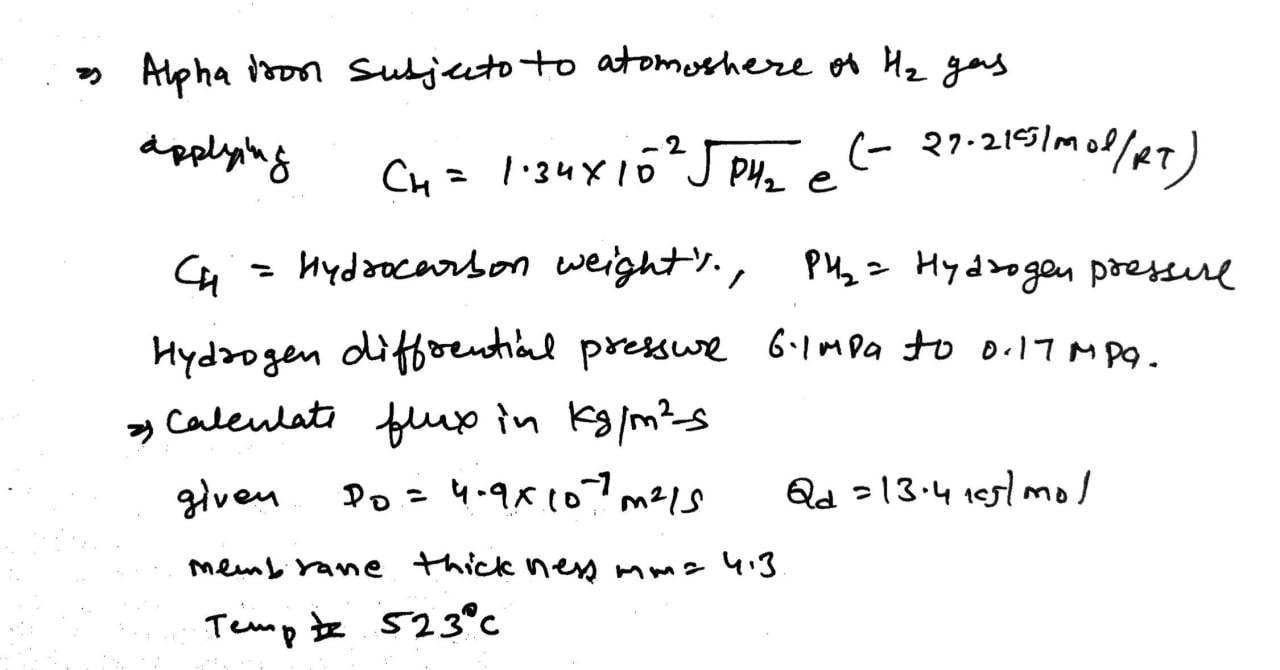 ⇒ Alpha iron subjecto to atomoshere of H₂ gas
applying C_H = 1.34 x 10⁻² √PH₂ e (- 27.2 kJ/mol/RT)
C_H = Hydrocarbon weight %, PH₂ = Hydrogen pressure
Hydrogen diffrential pressure 6.1 MPa to 0.17 MPa.
⇒ Calculate flux in Kg/m²-s
given D₀ = 4.9 x 10⁻⁷ m²/s Qd = 13.4 kJ/mol
membrane thickness mm = 4.3
Temp 523°C